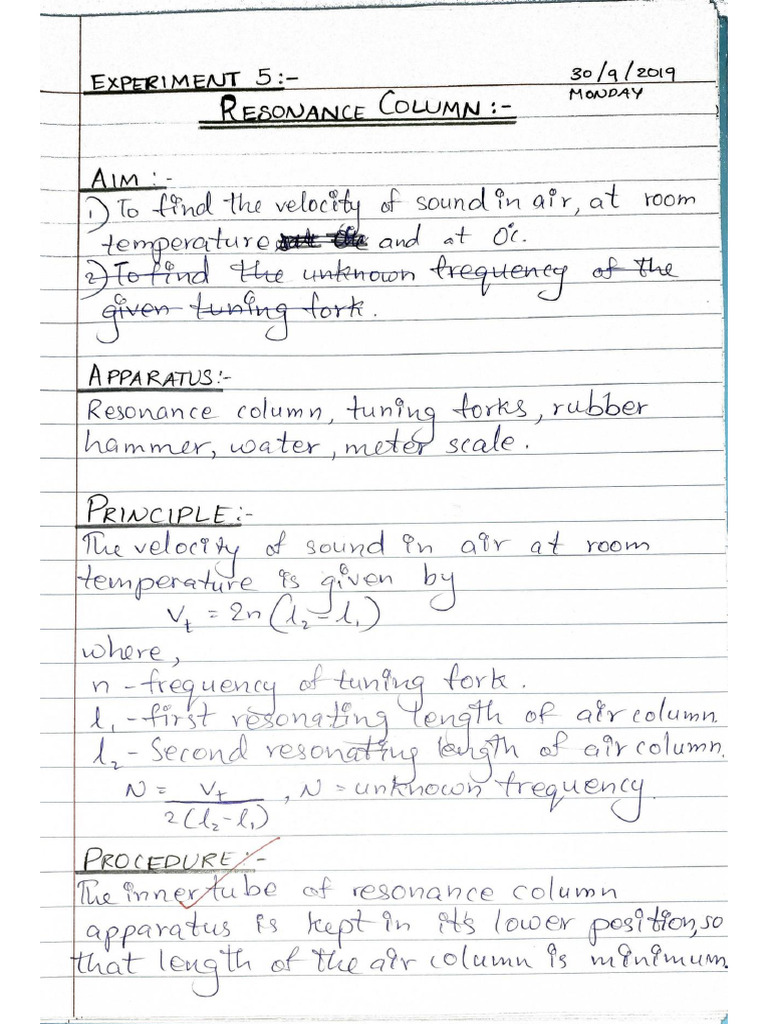 EXPERIMENT 5:-
30/9/2019
MONDAY
RESONANCE COLUMN:-
AIM:-
1) To find the velocity of sound in air, at room
temperature and at 0°c.
2) To find the unknown frequency of the
given tuning fork.
APPARATUS:-
Resonance column, tuning forks, rubber
hammer, water, meter scale.
PRINCIPLE:-
The velocity of sound in air at room
temperature is given by
Vₜ = 2n(l₂-l₁)
where,
n - frequency of tuning fork.
l₁ - first resonating length of air column.
l₂ - Second resonating length of air column.
N = Vₜ / 2(l₂-l₁) , N = unknown frequency.
PROCEDURE:-
The inner tube of resonance column
apparatus is kept in it's lower position, so
that length of the air column is minimum.